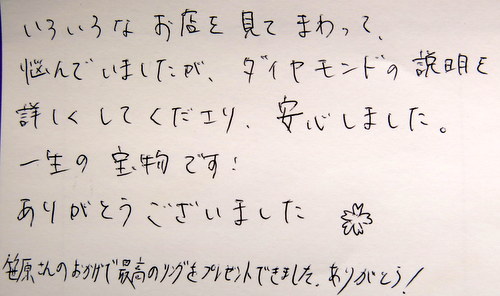 いろいろな お店を 見て まわって、
悩んでいましたが、ダイヤモンドの 説明を
詳しく して くださり、安心しました。
一生の 宝物 です!
ありがとうございました
笹原さんのおかげで最高のリングをプレゼントできました。ありがとう!